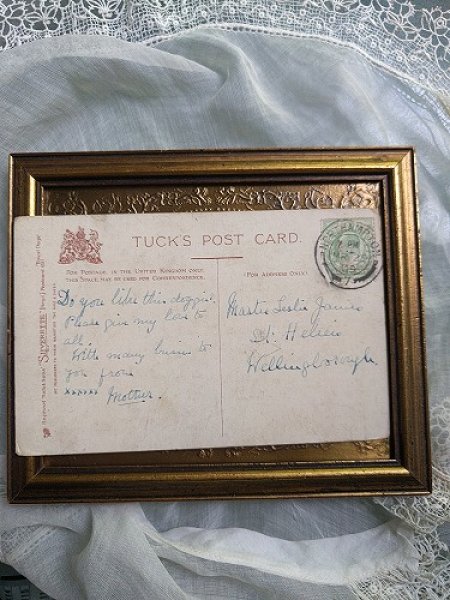 TUCK'S POST CARD.
FOR POSTAGE IN THE UNITED KINGDOM ONLY,
THIS SPACE MAY BE USED FOR CORRESPONDENCE.
(FOR ADDRESS ONLY.)
Do you like this doggie.
Please give my love to
all.
With many kisses to
you from
xxxxxx Mother.
Master Leslie
St. Helens
Wellingborough
"SILVERETTE"